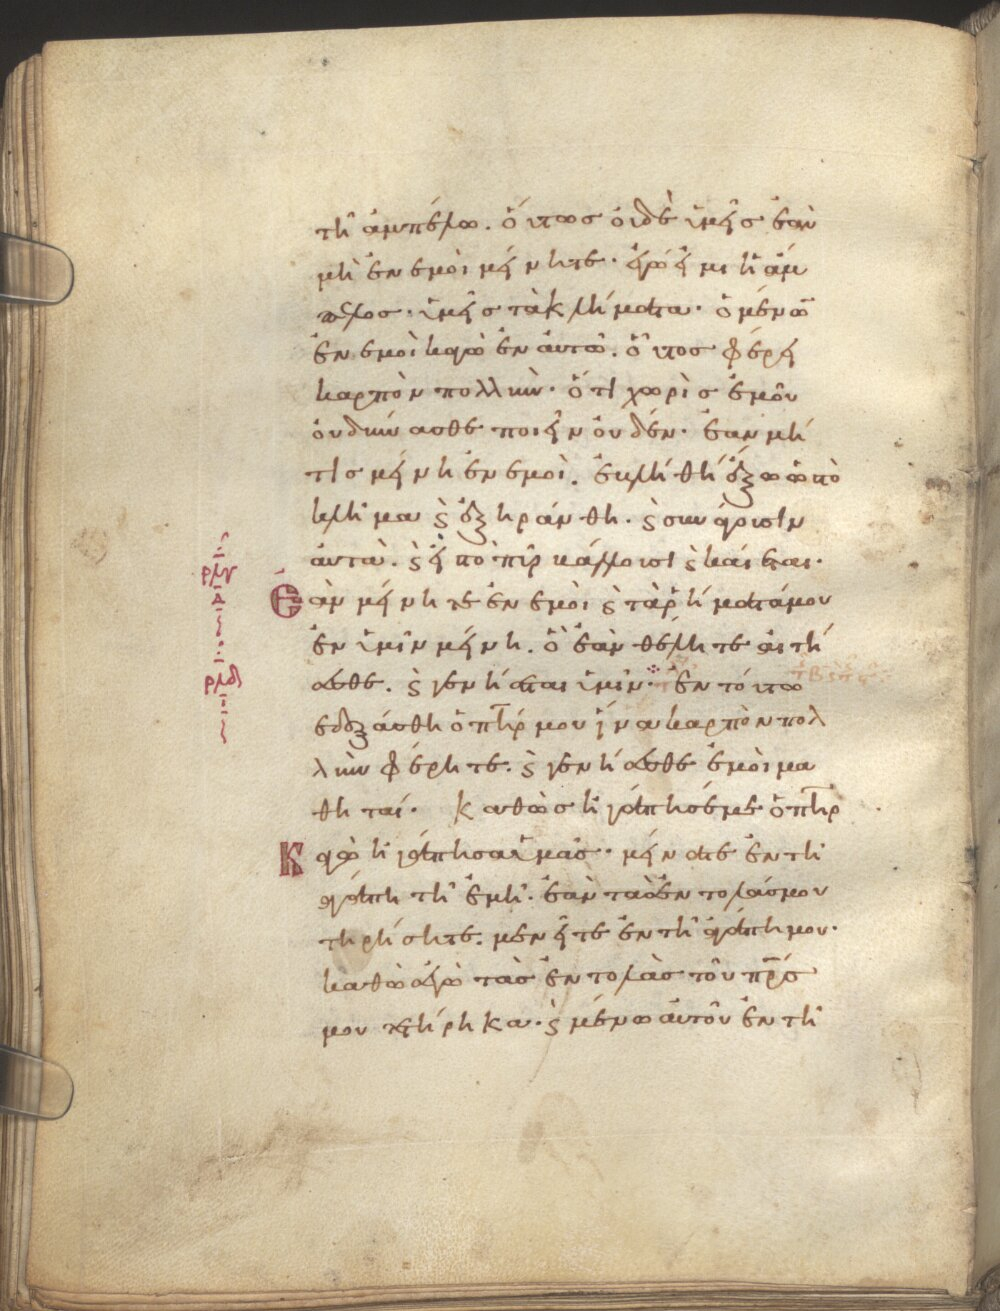 τῆ ἀμπέλω. ὅυτωσ ὀυδὲ ὑμεῖσ ἐὰν
μὴ ἐν εμοὶ μείνητε· ἐγώ εἰμι ἡ ἄμ
πελος· ὑμεῖσ τὰ κλήματα· ὁ μένων
ἐν εμοὶ καγὼ ἐν ἀυτῶ. ὅυτοσ φέρει
καρπὸν πολλὺν· ὅτι χωρὶσ ἐμοῦ
ὀυδύνασθε ποιεῖν ὀυδέν· ἐαν μή
τισ μείνη ἐν εμοὶ. ἐκλήθη ἔξω ὡ τὸ
κλῆμα ϛ ἐξηράνθη. ϛ συνάγουσιν
ἀυτὼ. ϛ εἰ πὸ πῦρ κάλλουσι ϛ καίεται·
Ἐὰν μείνητε ἐν εμοὶ ϛ τὰ ῥήματά μου
ἐν ὑμῖν μείνη. ὃ ἐὰν θέλητε ἀιτή
σεσθε. ϛ γενήσεται ὑμῖν· ἐν τόυτω
εδοξάσθη ὁ πτήρ μου ἵνα καρπὸν πολ
λὺν φέρητε. ϛ γενήσεσθε ἐμοὶ μα
θηταί. Καθὼσ ἠγάπησέ με ὁ πτήρ
Καγὼ ἠγάπησα ὑμᾶσ· μείνατε ἐν τῆ
ἀγάπη τῆ ἐμῆ· ἐὰν τὰσ ἐντολάσ μου
τηρήσητε. μενεῖτε ἐν τῆ ἀγάπη μου·
καθὼσ εγὼ τὰσ ἐντολὰσ τοῦ πρσ
μου τετήρηκα· ϛ μένω ἀυτοῦ ἐν τῆ
ρλγ
δ
ρλδ
ι